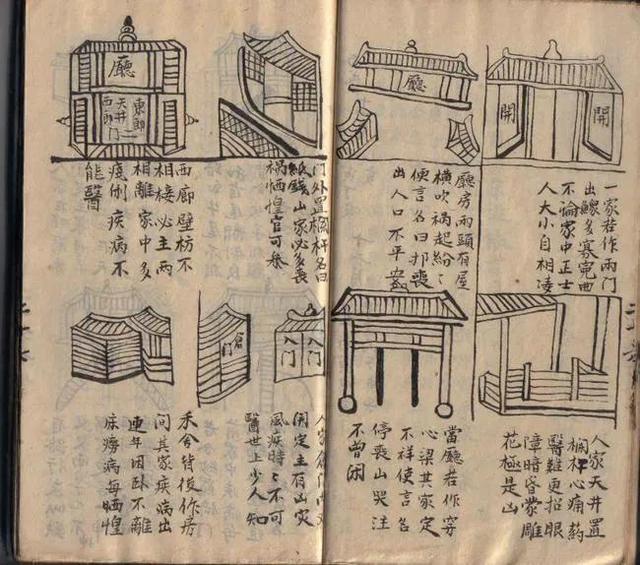 開 開
一家若作兩門
出鰥多寡寃曲
不論家中正士
人大小自相凌
廳
廳房兩頭有屋
橫吹禍起紛〻
便言名曰喪
出人口不平安
門外置欄杆名曰
紙錢山家必多喪
禍恓惶官可
廳
東郎
天井
西郎
门
西廊壁枋不
相接必主兩
相離家中多
疾病不
能醫
人家天井置
欄杆心痛药
醫難更招眼
障暗昏蒙雕
花極是凶
當廳若作穿
心梁其家定
不祥便言名
停喪山哭泣
不曾闲
入门 入门
门
人家门
開定主有山灾
風疾時〻不可
醫世上少人知
禾舍背後作房
问其家疾病出
連年困卧不離
床癆病每恓惶